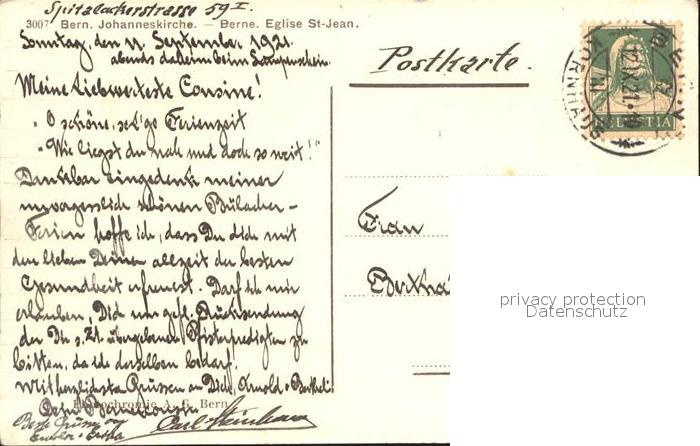 Spitalackerstrasse 59 I.
3007 Bern. Johanneskirche. — Berne. Eglise St-Jean.
Sonntag, den 11. September 1921
abends daheim beim Lampenschein.
Postkarte.
Meine liebwerteste Cousine!
"O schöne, sel'ge Ferienzeit
"Wie liegst du nah und doch so weit!"
Dankbar eingedenk meiner
unvergesslich schönen Bülacher-
Ferien hoffe ich, dass Du Dich mit
den lieben Deinen allzeit der besten
Gesundheit erfreust. Darf ich mir
erlauben, Dich um gefl. Rücksendung
der Dir s. Zt. übergebenen Pfisterpredigten zu
bitten, da ich derselben bedarf.
Mit herzlichsten Grüssen an Dich, Arnold & Bertheli
Dein Berner Cousin
A. G. Bern
Beste Grüsse
Carl
Frau
Bertha
HELVETIA
12.IX.21.
KORNHAUS
privacy protection
Datenschutz